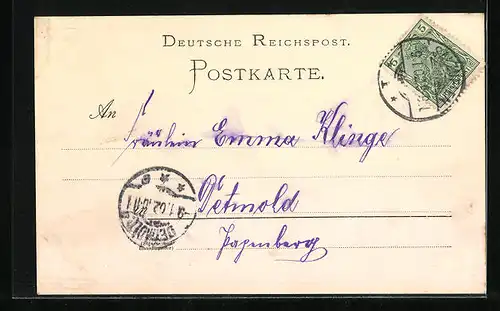 DEUTSCHE REICHSPOST.
POSTKARTE.
An
Fräulein Emma Klinge
Detmold
Papenberg
5 5
DETMOLD